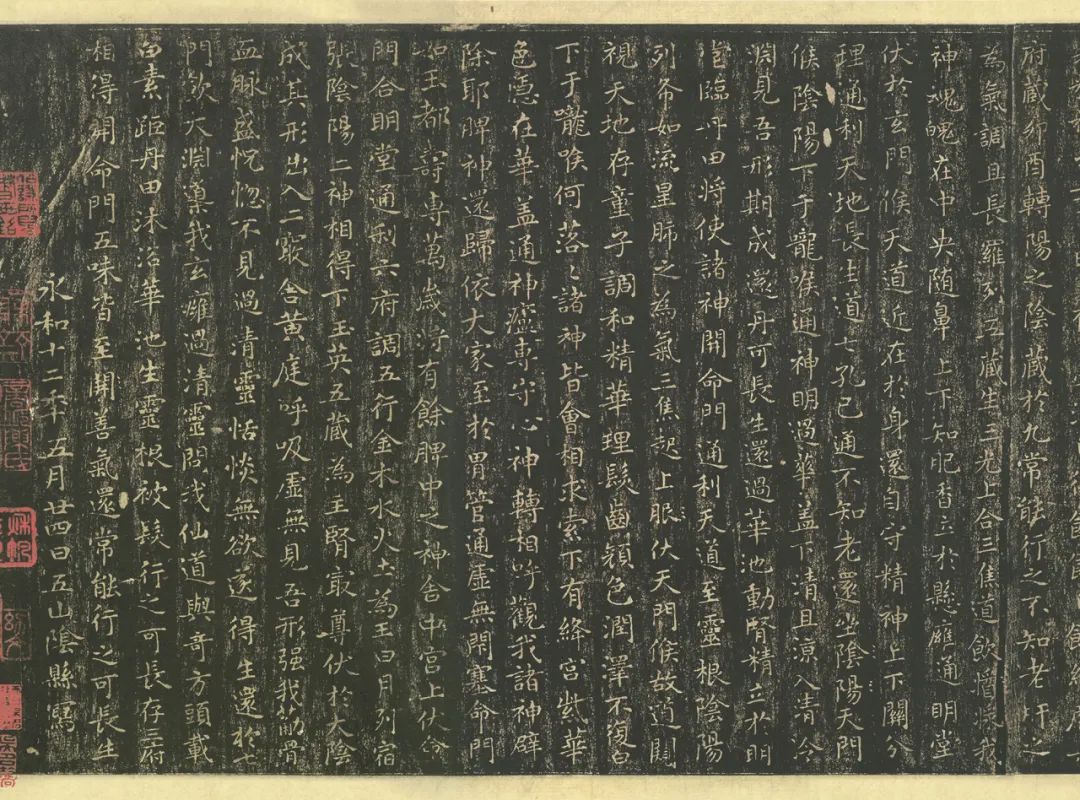 府藏卯酉轉陽之陰藏於九常能行之不知老肝之
為氣調且長羅列五藏生三光上合三焦道飲醬漿我
神魂魄在中央随鼻上下知肥香立於懸廱通明堂
伏於玄門候天道近在於身還自守精神上下關分
理通利天地長生道七孔已通不知老還坐陰陽天門
候陰陽下于嚨喉通神明過華盖下清且涼入清泠
淵見吾形期成還丹可長生還過華池動腎精立於明
堂臨丹田將使諸神開命門通利天道至靈根陰陽
列布如流星肺之為氣三焦起上服伏天門候故道闚
視天地存童子調和精華理髮齒顏色潤澤不復白
下于嚨喉何落〻諸神皆會相求索下有絳宮紫華
色隱在華盖通神廬專守心神轉相呼觀我諸神辟
除耶脾神還歸依大家至於胃管通虛無閉塞命門
如玉都壽專萬歲將有餘脾中之神舍中宮上伏命
門合明堂通利六府調五行金木水火土為王日月列宿
張陰陽二神相得下玉英五藏為主腎最尊伏於大陰
成其形出入二竅舍黃庭呼吸虛無見吾形强我筋骨
血脉盛恍惚不見過清靈恬惔無欲遂得生還於七
門飲大淵導我玄廱過清靈問我仙道與奇方頭載
白素距丹田沐浴華池生靈根被髮行之可長存三府
相得開命門五味皆至開善氣還常能行之可長生
永和十二年五月廿四日五山陰縣寫